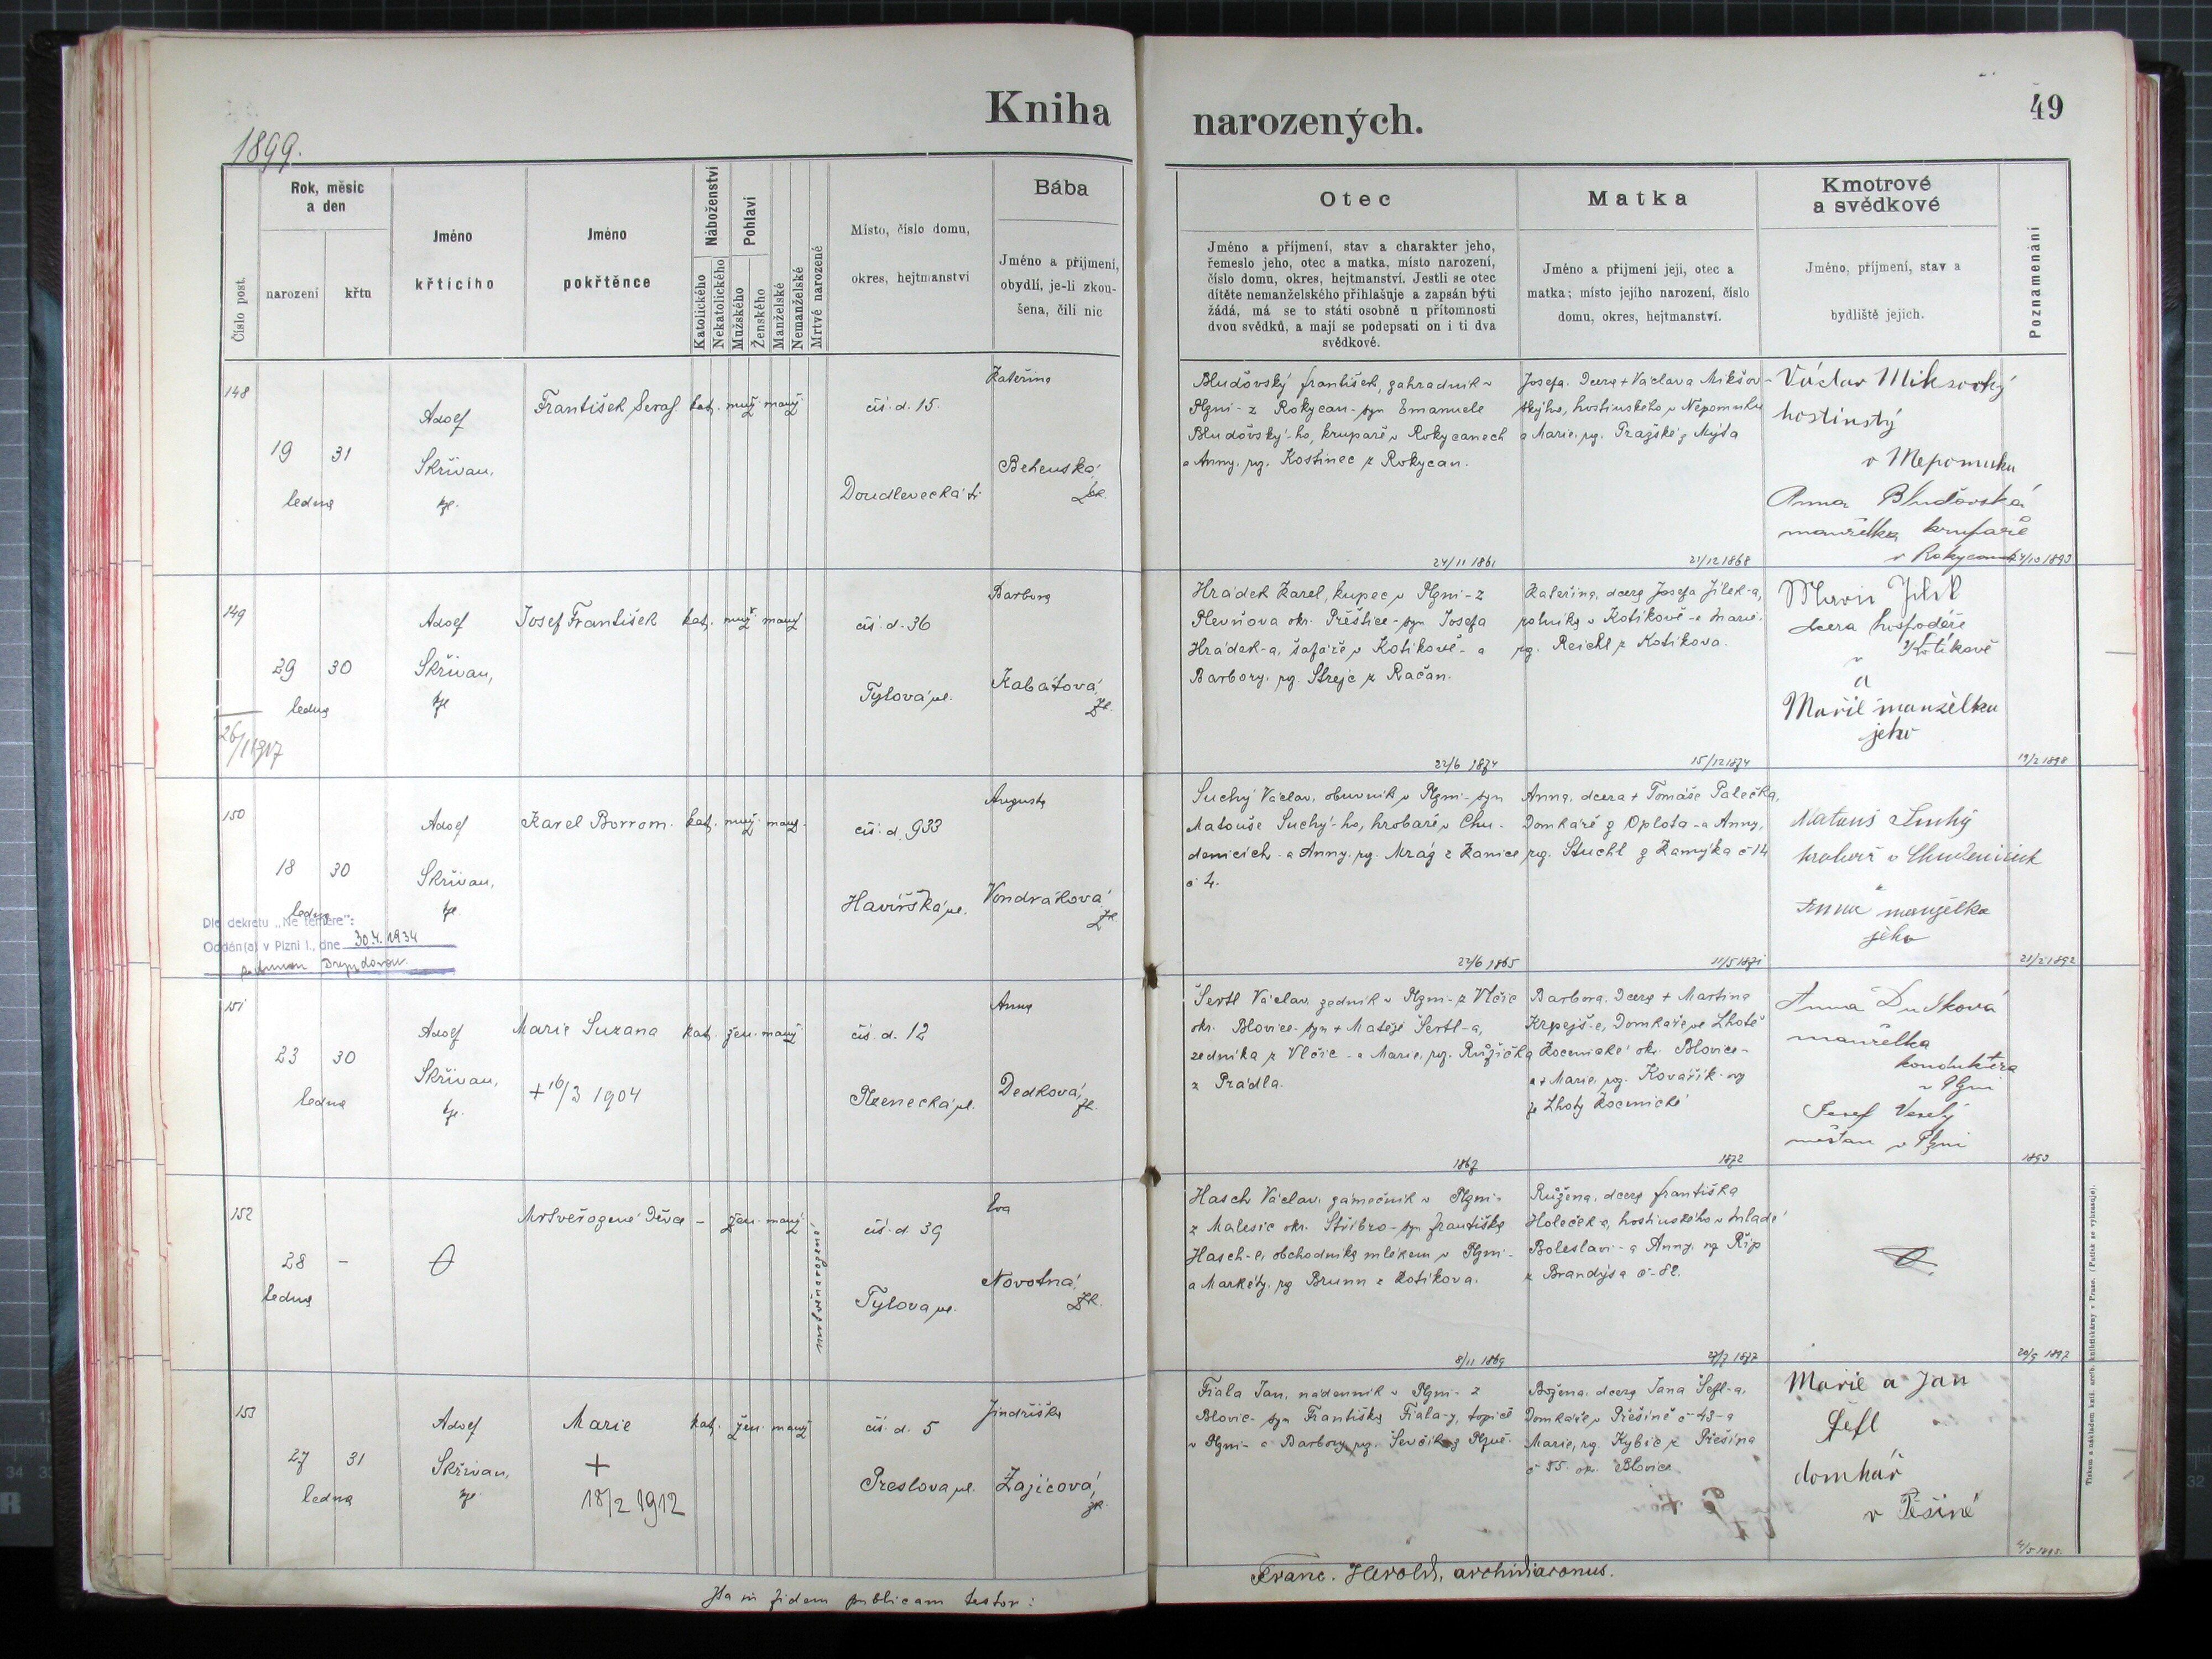 Kniha
narozených.
49
1899.
Číslo post.
Rok, měsíc
a den
narození
křtu
Jméno
křtícího
Jméno
pokřtěnce
Náboženství
Katolického
Nekatolického
Pohlaví
Mužského
Ženského
Manželské
Nemanželské
Mrtvě narozené
Místo, číslo domu,
okres, hejtmanství
Bába
Jméno a přijmení,
obydlí, je-li zkou-
šena, čili nic
Otec
Jméno a příjmení, stav a charakter jeho,
řemeslo jeho, otec a matka, místo narození,
číslo domu, okres, hejtmanství. Jestli se otec
dítěte nemanželského přihlašuje a zapsán býti
žádá, má se to státi osobně u přítomnosti
dvou svědků, a mají se podepsati on i ti dva
svědkové.
Matka
Jméno a přijmení její, otec a
matka; místo jejího narození, číslo
domu, okres, hejtmanství.
Kmotrové
a svědkové
Jméno, příjmení, stav a
bydliště jejich.
Poznamenání
148
19 31
ledna
Adolf
Skřivan,
František Seraf.
kat. muž. manž.
čís. d. 15.
Doudlevecká tř.
Kateřina
Behenská
Bludovský František, zahradník v
Plzni - z Rokycan - syn Emanuele
Bludovský-ho, krupaře v Rokycanech
a Anny, roz. Kostinec z Rokycan.
24/11 1861
Josefa, dcera + Václava Mikšov-
ský-ho, hostinského v Nepomuku
a Marie, roz. Pražské z Mýta
21/12 1868
Václav Miksovský
hostinský
v Nepomuku
Anna Bludovská
manželka krupaře
v Rokycanech
24/10 1893
149
29 30
ledna
26/1 1917
Adolf
Skřivan,
Josef František
kat. muž. manž.
čís. d. 36
Tylova ul.
Barbora
Kabátová,
zk.
Hrádek Karel, kupec v Plzni - z
Plevňova okr. Přeštice - syn Josefa
Hrádek-a, šafáře v Kotíkově - a
Barbory, roz. Strejc z Račan.
22/6 1874
Kateřina, dcera Josefa Jílek-a,
rolníka v Kotíkově - a Marie,
roz. Reichl z Kotíkova.
15/12 1874
Marie Jílek
dcera hospodáře
v Kotíkově
a
Marie manželka
jeho
19/2 1898
150
18 30
ledna
Dle dekretu „Ne temere":
Oddán(a) v Plzni I., dne 30.4.1934
Adolf
Skřivan,
Karel Borrom.
kat. muž. manž.
čís. d. 933
Havířská ul.
Augusta
Vondráková,
zk.
Suchý Václav, obuvník v Plzni - syn
Matouše Suchý-ho, hrobaře v Chu-
denicích - a Anny, roz. Mráz z Kanice
č 4.
22/6 1865
Anna, dcera + Tomáše Palečka,
domkáře z Oplota - a Anny,
roz. Stuchl z Kamýka č 14
11/5 1871
Matouš Suchý
hrobař v Chudenicích
a
Anna manželka
jeho
21/2 1892
151
23 30
ledna
Adolf
Skřivan,
Marie Suzana
+ 16/3 1904
kat. žen. manž.
čís. d. 12
Plzenecká ul.
Anna
Dedková,
zk.
Šertl Václav, zedník v Plzni - z Vlčic
okr. Blovice - syn + Matěje Šertl-a,
zedníka z Vlčic - a Marie, roz. Růžička
z Prádla.
1867
Barbora, dcera + Martina
Krpejš-e, domkáře ve Lhotě
Žocenické okr. Blovice -
a + Marie, roz. Kovařík-ovy
ze Lhoty Žocenické
1872
Anna Dudková
manželka
konduktéra
v Plzni
Josef Veselý
měšťan v Plzni
1893
152
28 –
ledna
Mrtvěrozené Děvče
– žen. manž.
mrtvěnarozené
čís. d. 39
Tylova ul.
Eva
Novotná,
zk.
Hasch Václav, zámečník v Plzni -
z Malesic okr. Stříbro - syn Františka
Hasch-e, obchodníka mlékem v Plzni -
a Markéty, roz Brunn z Kotíkova.
8/11 1869
Růžena, dcera Františka
Holečka, hostinského v Mladé
Boleslavi - a Anny, roz Říp
z Brandýsa č - 82.
27/7 1877
20/9 1897
153
27 31
ledna
Adolf
Skřivan,
Marie
+
18/2 1912
kat. žen. manž.
čís. d. 5
Preslova ul.
Jindřiška
Zajícová,
zk.
Fiala Jan, nádenník v Plzni - z
Blovic - syn Františka Fiala-y, topiče
v Plzni - a Barbory, roz. Ševčík z Plzně.
Božena, dcera Jana Šefl-a,
domkáře v Přešíně č - 43 - a
Marie, roz. Kybic z Přešína
č 55. okr. Blovice.
Marie a Jan
Šefl
domkář
v Pěšíně
Ita in fidem publicam testor:
Franc. Herold, archidiaconus.
Tiskem a nákladem kníž. arcib. knihtiskárny v Praze. (Patisk se vyhrazuje).